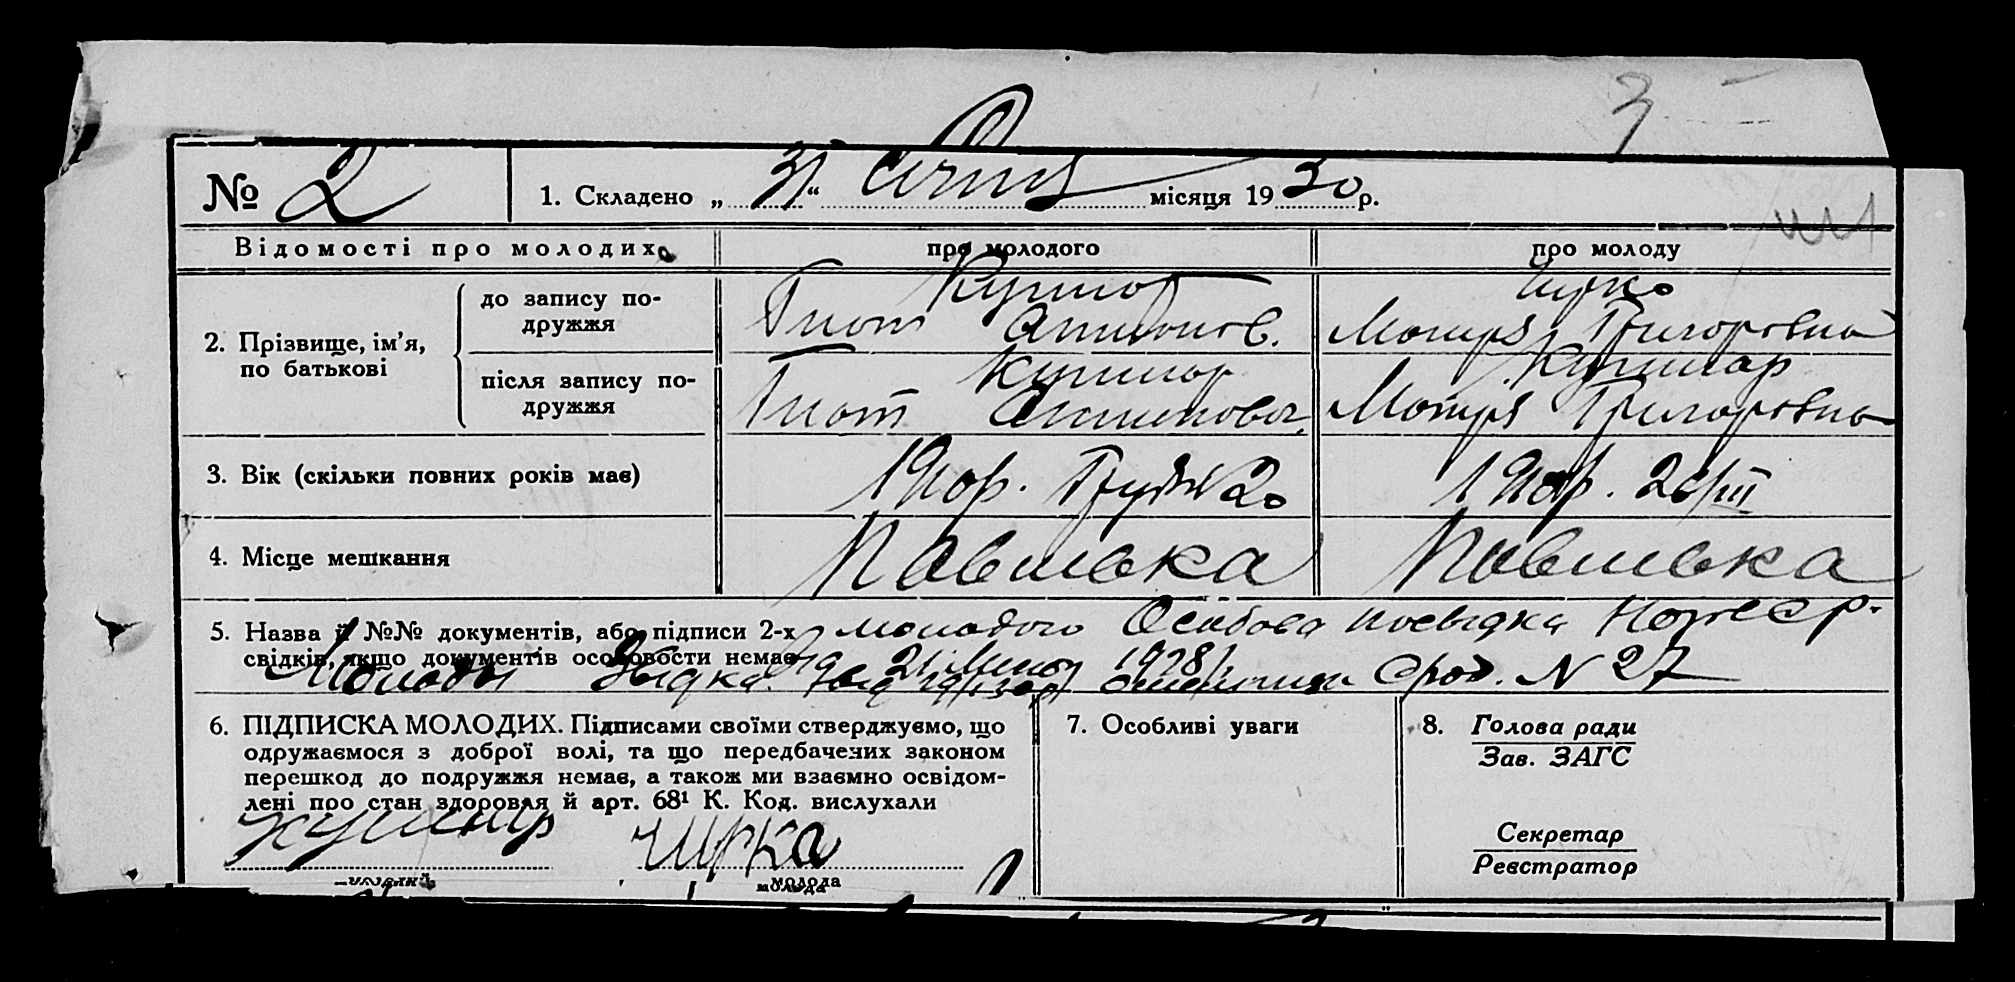 3
№ 2
1. Складено „ 31 “ Січня місяця 1930 р.
Відомості про молодих
про молодого
про молоду
2. Прізвище, ім'я, по батькові
до запису подружжя
Гнат
Чирка
Мотря Григоровна
після запису подружжя
Кушнар
Гнат
Кушнар
Мотря Григоровна
3. Вік (скільки повних років має)
19
19
4. Місце мешкання
Павлівка
Павлівка
5. Назва й №№ документів, або підписи 2-х
молодого Особова посвідка
свідків, якщо документів особовости немає
21 1928
Молоды № 27
6. ПІДПИСКА МОЛОДИХ. Підписами своїми стверджуємо, що
одружаємося з доброї волі, та що передбачених законом
перешкод до подружжя немає, а також ми взаємно освідом-
лені про стан здоровля й арт. 68¹ К. Код. вислухали
Кушнір
Чирка
молода
7. Особливі уваги
8. Голова ради
Зав. ЗАГС
Секретар
Реєстратор